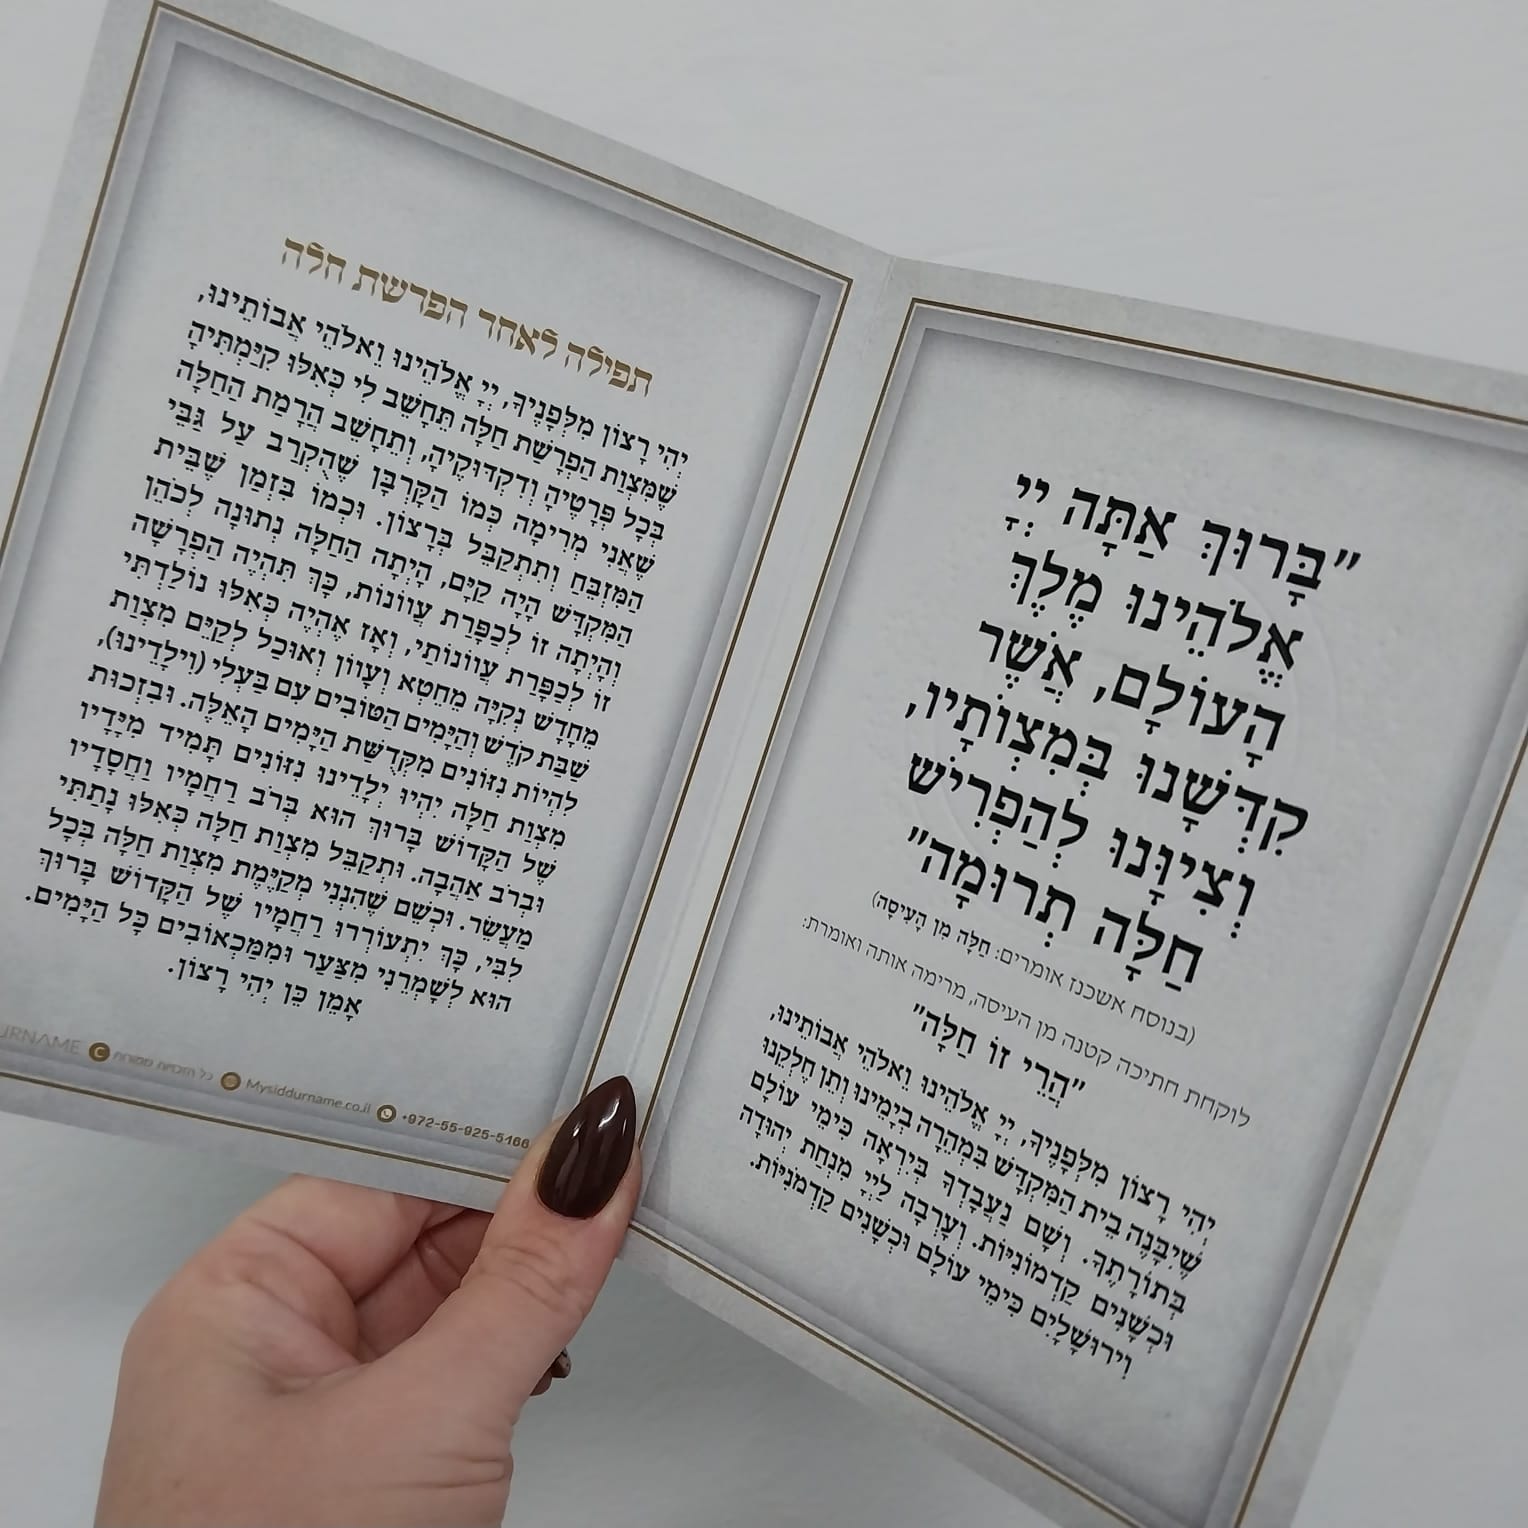 "בָּרוּךְ אַתָּה יְיָ
אֱלֹהֵינוּ מֶלֶךְ
הָעוֹלָם, אֲשֶׁר
קִדְּשָׁנוּ בְּמִצְוֹתָיו,
וְצִיוָּנוּ לְהַפְרִישׁ
חַלָּה תְּרוּמָה"
(בנוסח אשכנז אומרים: חַלָּה מִן הָעִיסָה)
לוקחת חתיכה קטנה מן העיסה, מרימה אותה ואומרת:
"הֲרֵי זוֹ חַלָּה"
יְהִי רָצוֹן מִלְּפָנֶיךָ, יְיָ אֱלֹהֵינוּ וֵאלֹהֵי אֲבוֹתֵינוּ,
שֶׁיִּבָּנֶה בֵּית הַמִּקְדָּשׁ בִּמְהֵרָה בְיָמֵינוּ וְתֵן חֶלְקֵנוּ
בְּתוֹרָתֶךָ. וְשָׁם נַעֲבָדְךָ בְּיִרְאָה כִּימֵי עוֹלָם
וּכְשָׁנִים קַדְמוֹנִיּוֹת. וְעָרְבָה לַיְיָ מִנְחַת יְהוּדָה
וִירוּשָׁלָיִם כִּימֵי עוֹלָם וּכְשָׁנִים קַדְמֹנִיּוֹת.
תפילה לאחר הפרשת חלה
יְהִי רָצוֹן מִלְּפָנֶיךָ, יְיָ אֱלֹהֵינוּ וֵאלֹהֵי אֲבוֹתֵינוּ,
שֶׁמִּצְוַת הַפְרָשַׁת חַלָּה תֵּחָשֵׁב לִי כְּאִלּוּ קִיַּמְתִּיהָ
בְּכָל פְּרָטֶיהָ וְדִקְדּוּקֶיהָ, וְתֵחָשֵׁב הֲרָמַת הַחַלָּה
שֶׁאֲנִי מְרִימָה כְּמוֹ הַקָּרְבָּן שֶׁהֻקְרַב עַל גַּבֵּי
הַמִּזְבֵּחַ וְתִתְקַבֵּל בְּרָצוֹן. וּכְמוֹ בִּזְמַן שֶׁבֵּית
הַמִּקְדָּשׁ הָיָה קַיָּם, הָיְתָה הַחַלָּה נְתוּנָה לְכֹהֵן
וְהָיְתָה זוֹ לְכַפָּרַת עֲווֹנוֹת, כָּךְ תִּהְיֶה הַפְרָשָׁה
זוֹ לְכַפָּרַת עֲווֹנוֹתַי, וְאָז אֶהְיֶה כְּאִלּוּ נוֹלַדְתִּי
מֵחָדָשׁ נְקִיָּה מֵחֵטְא וְעָוֹון וְאוּכַל לְקַיֵּם מִצְוַת
שַׁבַּת קֹדֶשׁ וְהַיָּמִים הַטּוֹבִים עִם בַּעְלִי (וִילָדֵינוּ),
לִהְיוֹת נִזּוֹנִים מִקְּדֻשַּׁת הַיָּמִים הָאֵלֶּה. וּבִזְכוּת
מִצְוַת חַלָּה יִהְיוּ יְלָדֵינוּ נִזּוֹנִים תָּמִיד מִיָּדָיו
שֶׁל הַקָּדוֹשׁ בָּרוּךְ הוּא בְּרֹב רַחֲמָיו וַחֲסָדָיו
וּבְרֹב אַהֲבָה. וּתְקַבֵּל מִצְוַת חַלָּה כְּאִלּוּ נָתַתִּי
מַעֲשֵׂר. וּכְשֵׁם שֶׁהִנְנִי מְקַיֶּמֶת מִצְוַת חַלָּה בְּכָל
לִבִּי, כָּךְ יִתְעוֹרְרוּ רַחֲמָיו שֶׁל הַקָּדוֹשׁ בָּרוּךְ
הוּא לְשָׁמְרֵנִי מִצַּעַר וּמִמַּכְאוֹבִים כָּל הַיָּמִים.
אָמֵן כֵּן יְהִי רָצוֹן.
כל הזכויות שמורות Mysiddurname.co.il +972-55-925-5166